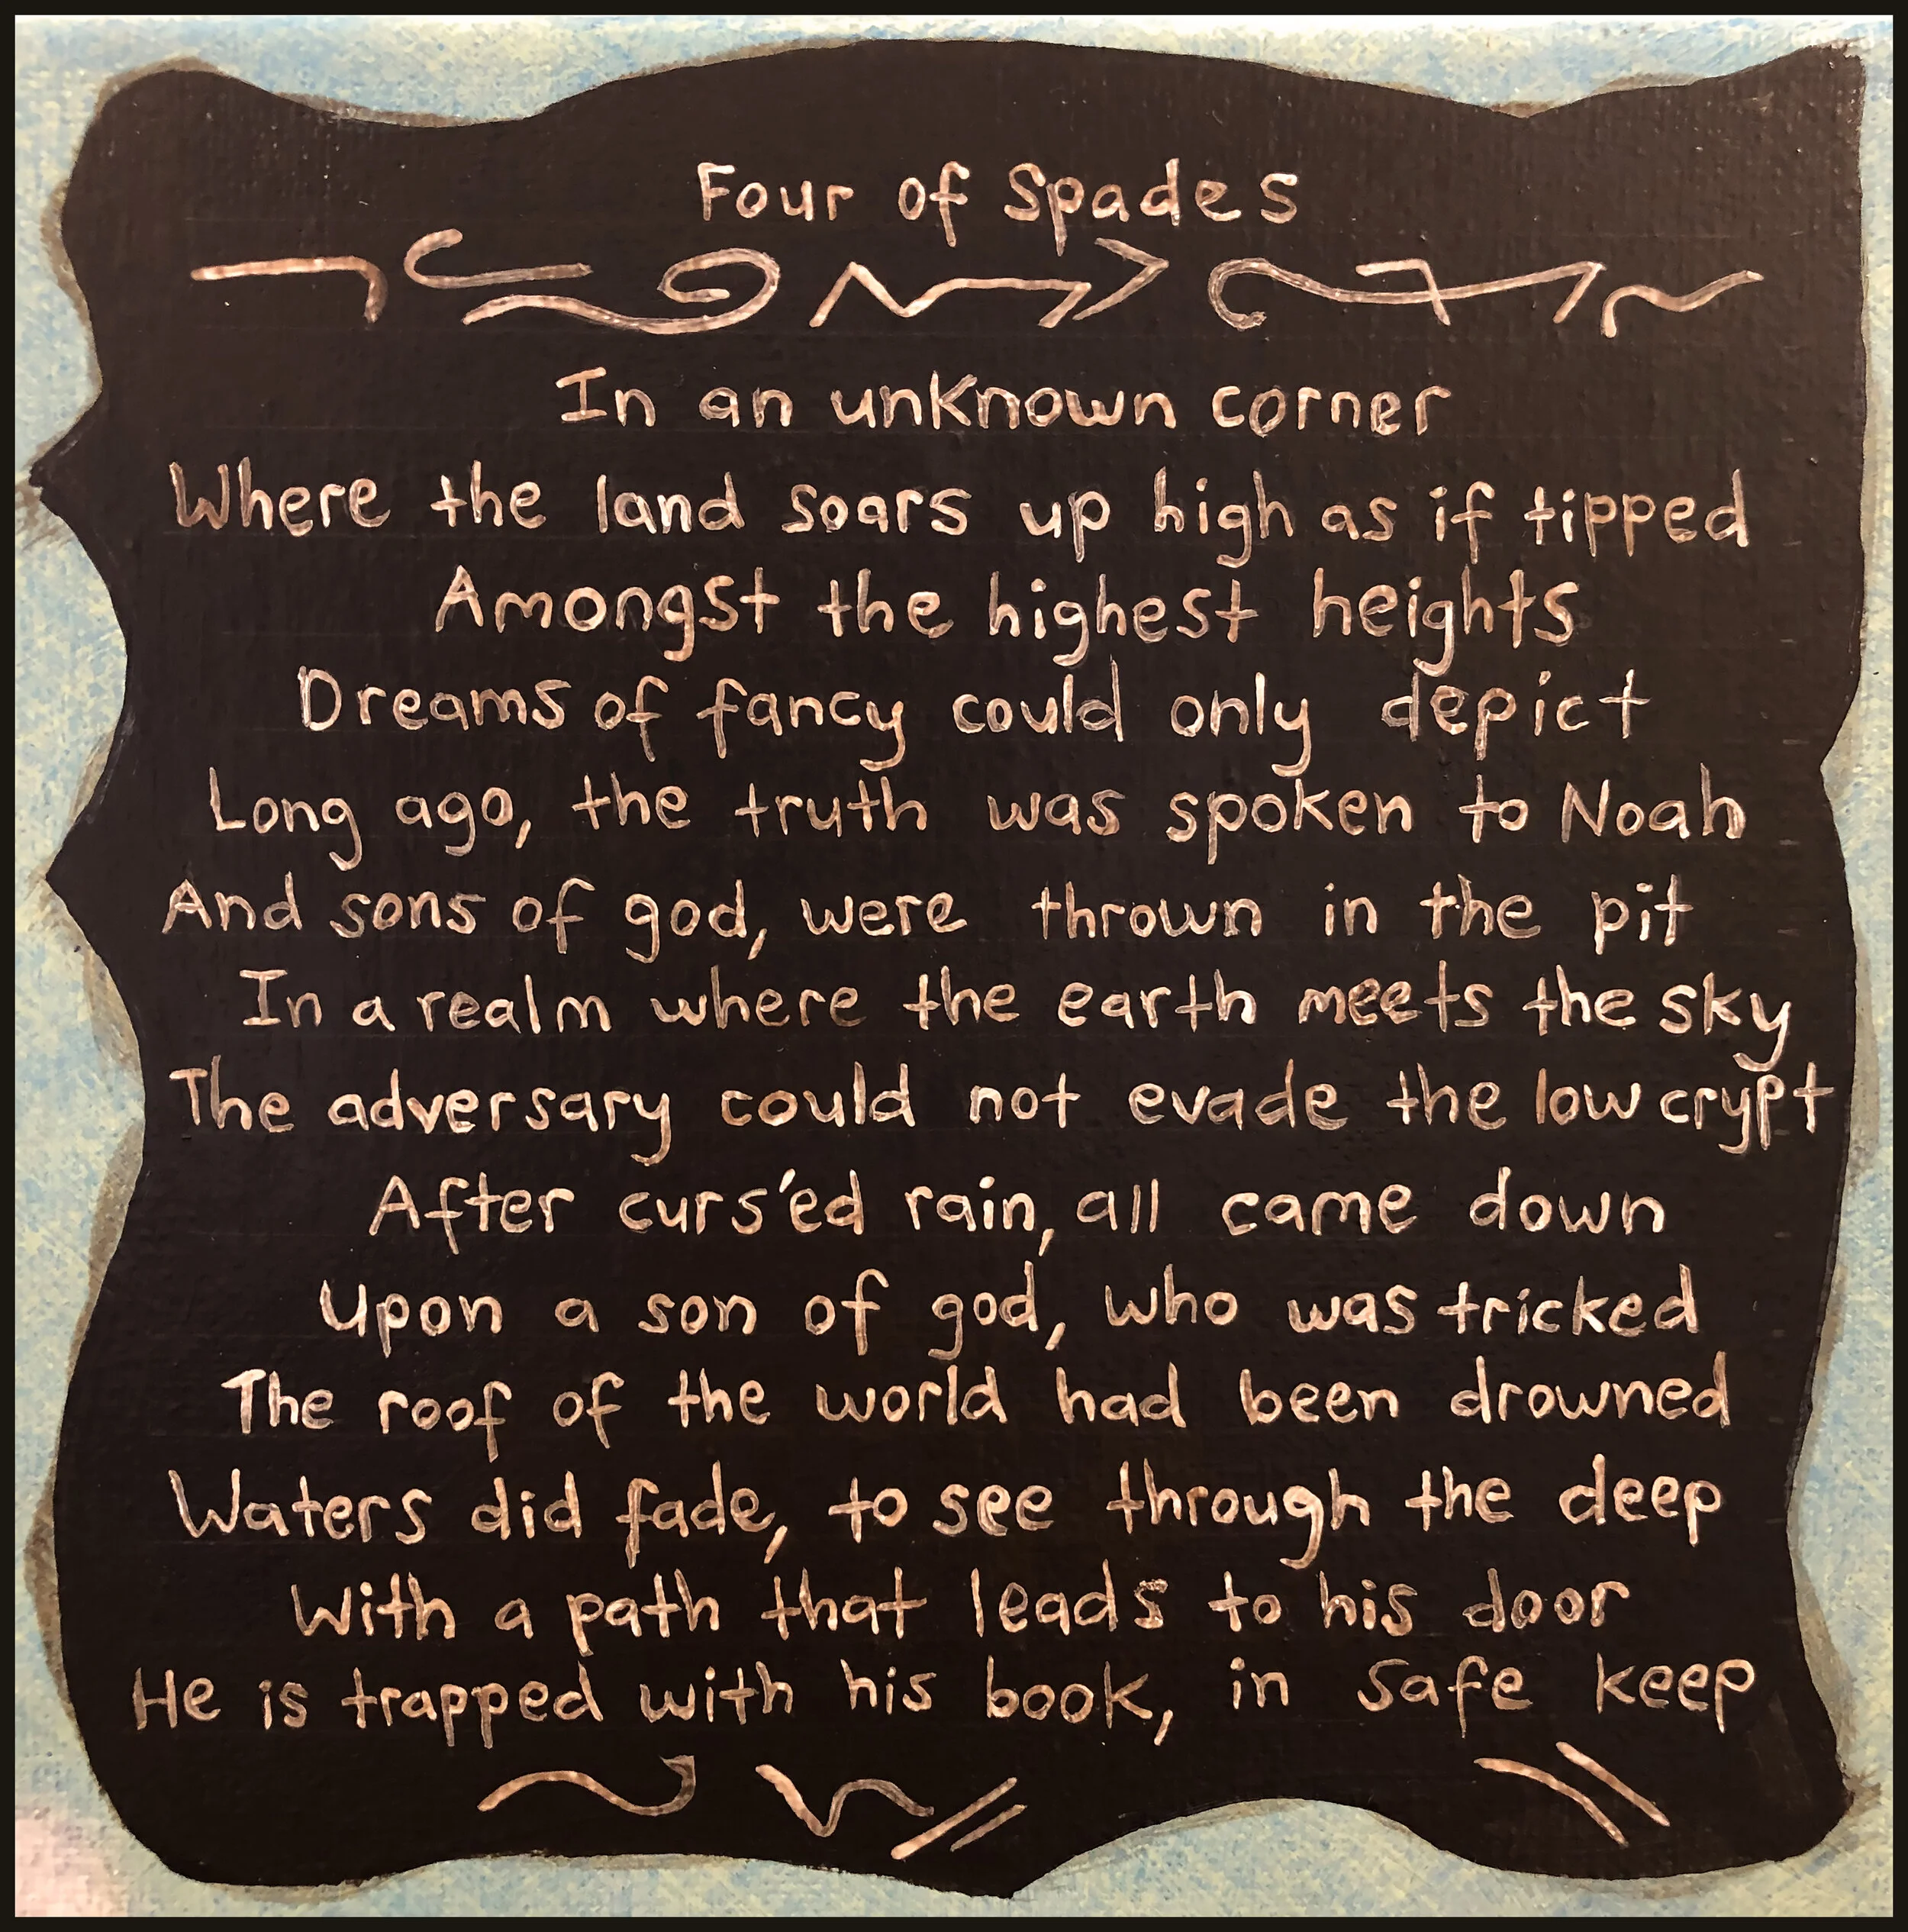 Four of Spades
In an unknown corner
Where the land soars up high as if tipped
Amongst the highest heights
Dreams of fancy could only depict
Long ago, the truth was spoken to Noah
And sons of god, were thrown in the pit
In a realm where the earth meets the sky
The adversary could not evade the low crypt
After curs'ed rain, all came down
Upon a son of god, who was tricked
The roof of the world had been drowned
Waters did fade, to see through the deep
With a path that leads to his door
He is trapped with his book, in safe keep